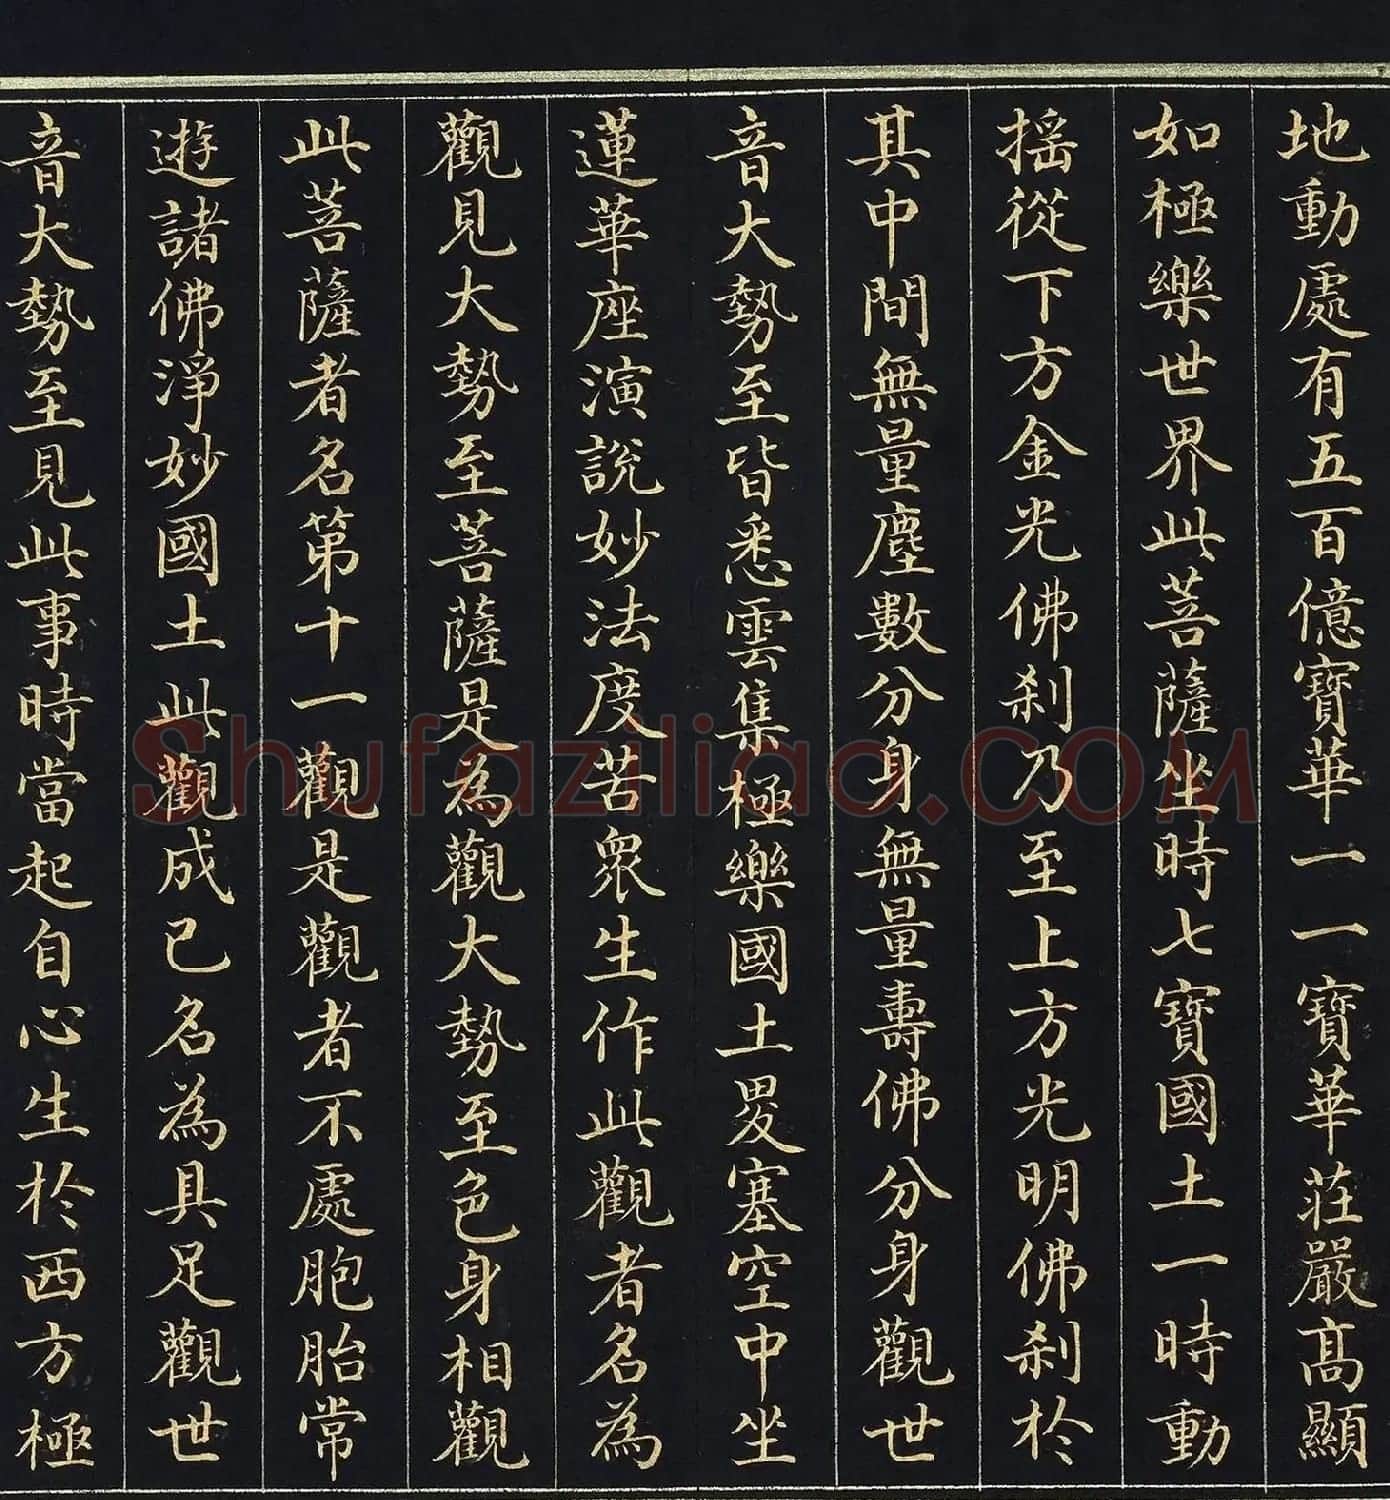 地動處有五百億寶華一一寶華莊嚴高顯
如極樂世界此菩薩坐時七寶國土一時動
搖從下方金光佛刹乃至上方光明佛刹於
其中間無量塵數分身無量壽佛分身觀世
音大勢至皆悉雲集極樂國土畟塞空中坐
蓮華座演說妙法度苦眾生作此觀者名為
觀見大勢至菩薩是為觀大勢至色身相觀
此菩薩者名第十一觀是觀者不處胞胎常
遊諸佛淨妙國土此觀成已名為具足觀世
音大勢至見此事時當起自心生於西方極
Shufaziliao.COM